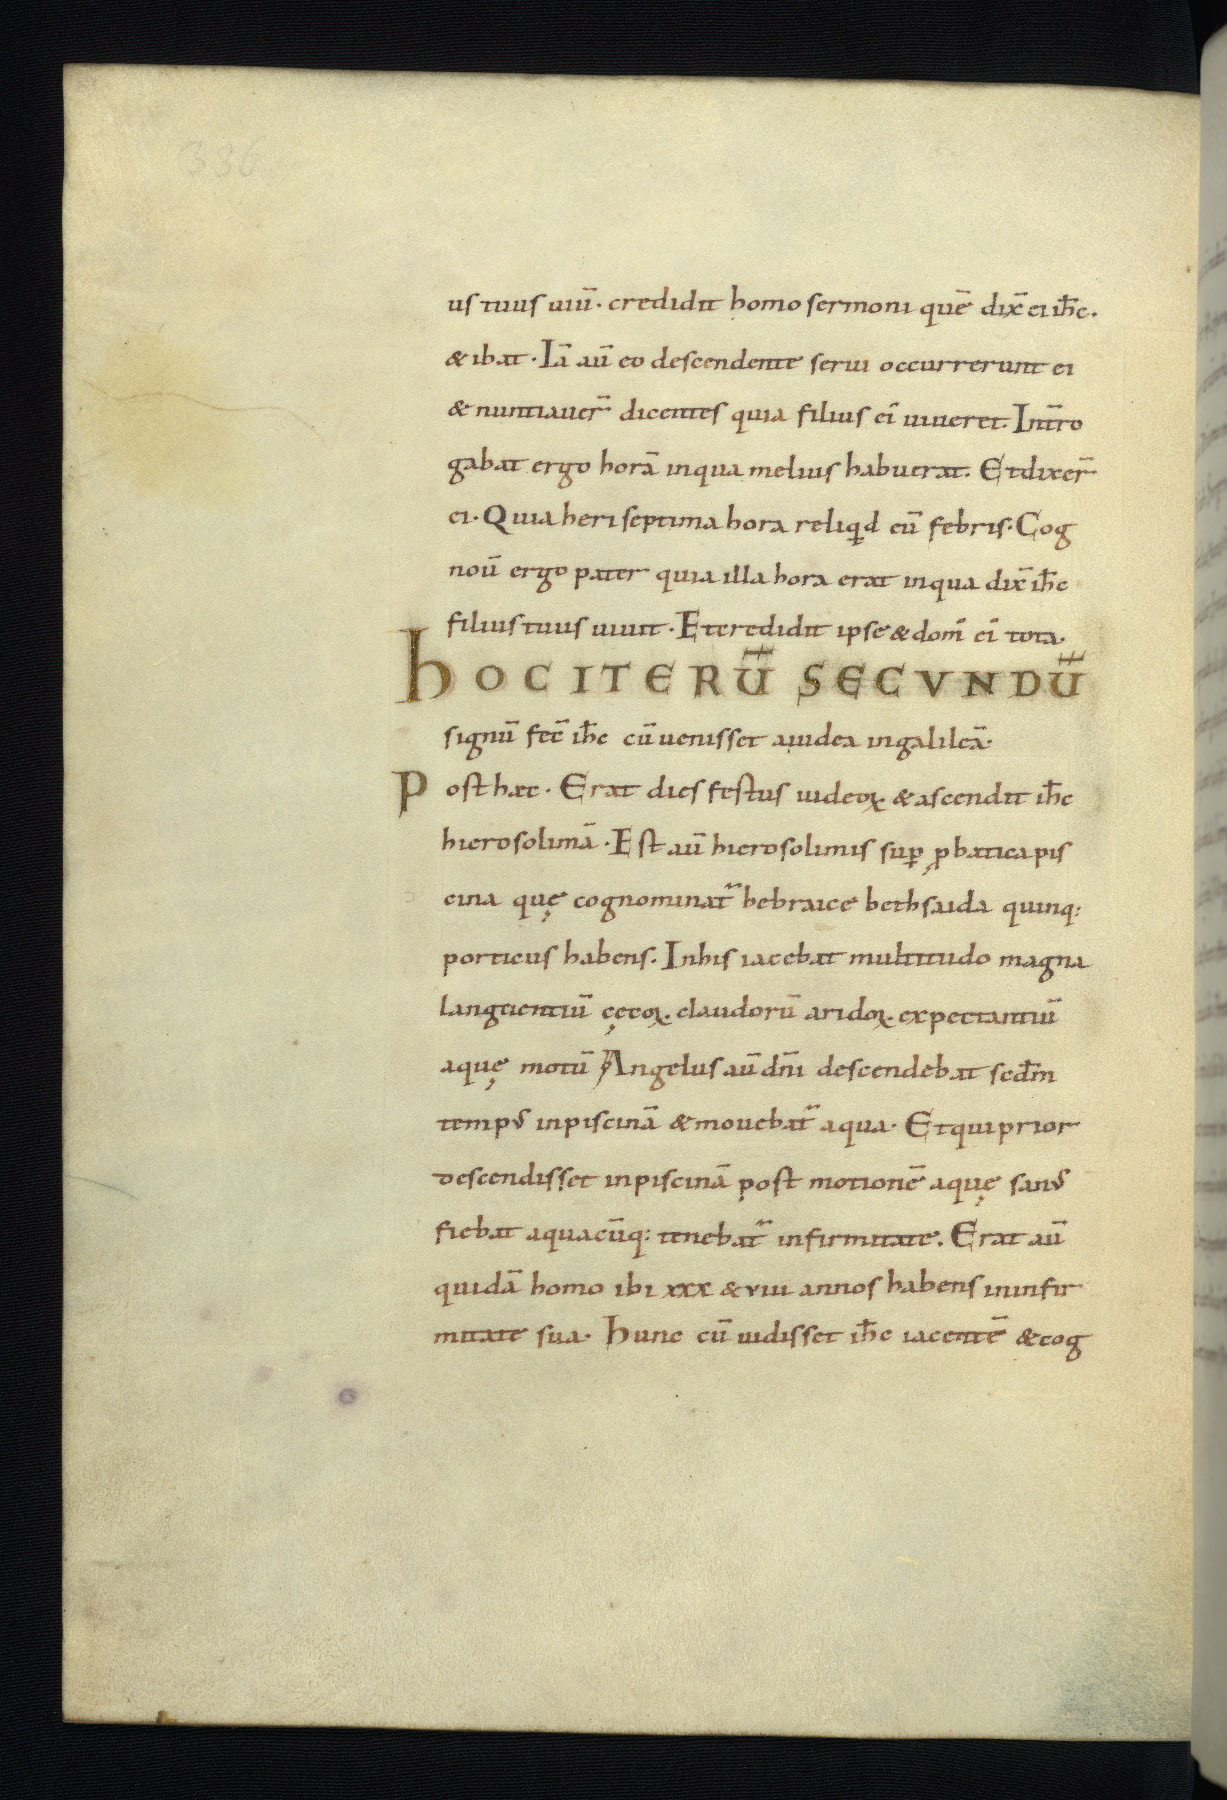 336
us tuus uiū. credidit homo sermoni quē dix̄ ei ih̄c.
& ibat. Iā aū eo descendente serui occurrerunt ei
& nuntiauer̄ dicentes quia filius ei̅ uiueret. Int̄ro
gabat ergo horā inqua melius habuerat. Et dixer̄
ei. Quia heri septima hora reliq̇d eū febris. Cog
noū ergo pater quia illa hora erat inqua dix̄ ih̄c
filius tuus uiuit. Et credidit ipse & dom̄ ei̅ tota.
HOC ITERŪ SECVNDŪ
signū fec̄ ih̄c cū uenisset aiudea ingalileā.
Post hæc. Erat dies festus iudeoꝝ & ascendit ih̄c
hierosolimā. Est aū hierosolimis suꝑ ꝓbatica pis
cina quę cognominat̄ hebraice bethsaida quinq:
porticus habens. Inhis iacebat multitudo magna
languentiū cęcoꝝ. claudorū aridoꝝ. expectantiū
aquę motū Angelus aū dn̄i descendebat scd̄m
temp᷒ inpiscinā & mouebat̄ aqua. Et qui prior
descendisset inpiscinā post motionē aquę san᷒
fiebat aquacūq: tenebat̄ infirmitate. Erat aū
quidā homo ibi xxx & viii annos habens ininfir
mitate sua. Hunc cū uidisset ih̄c iacentē & cog